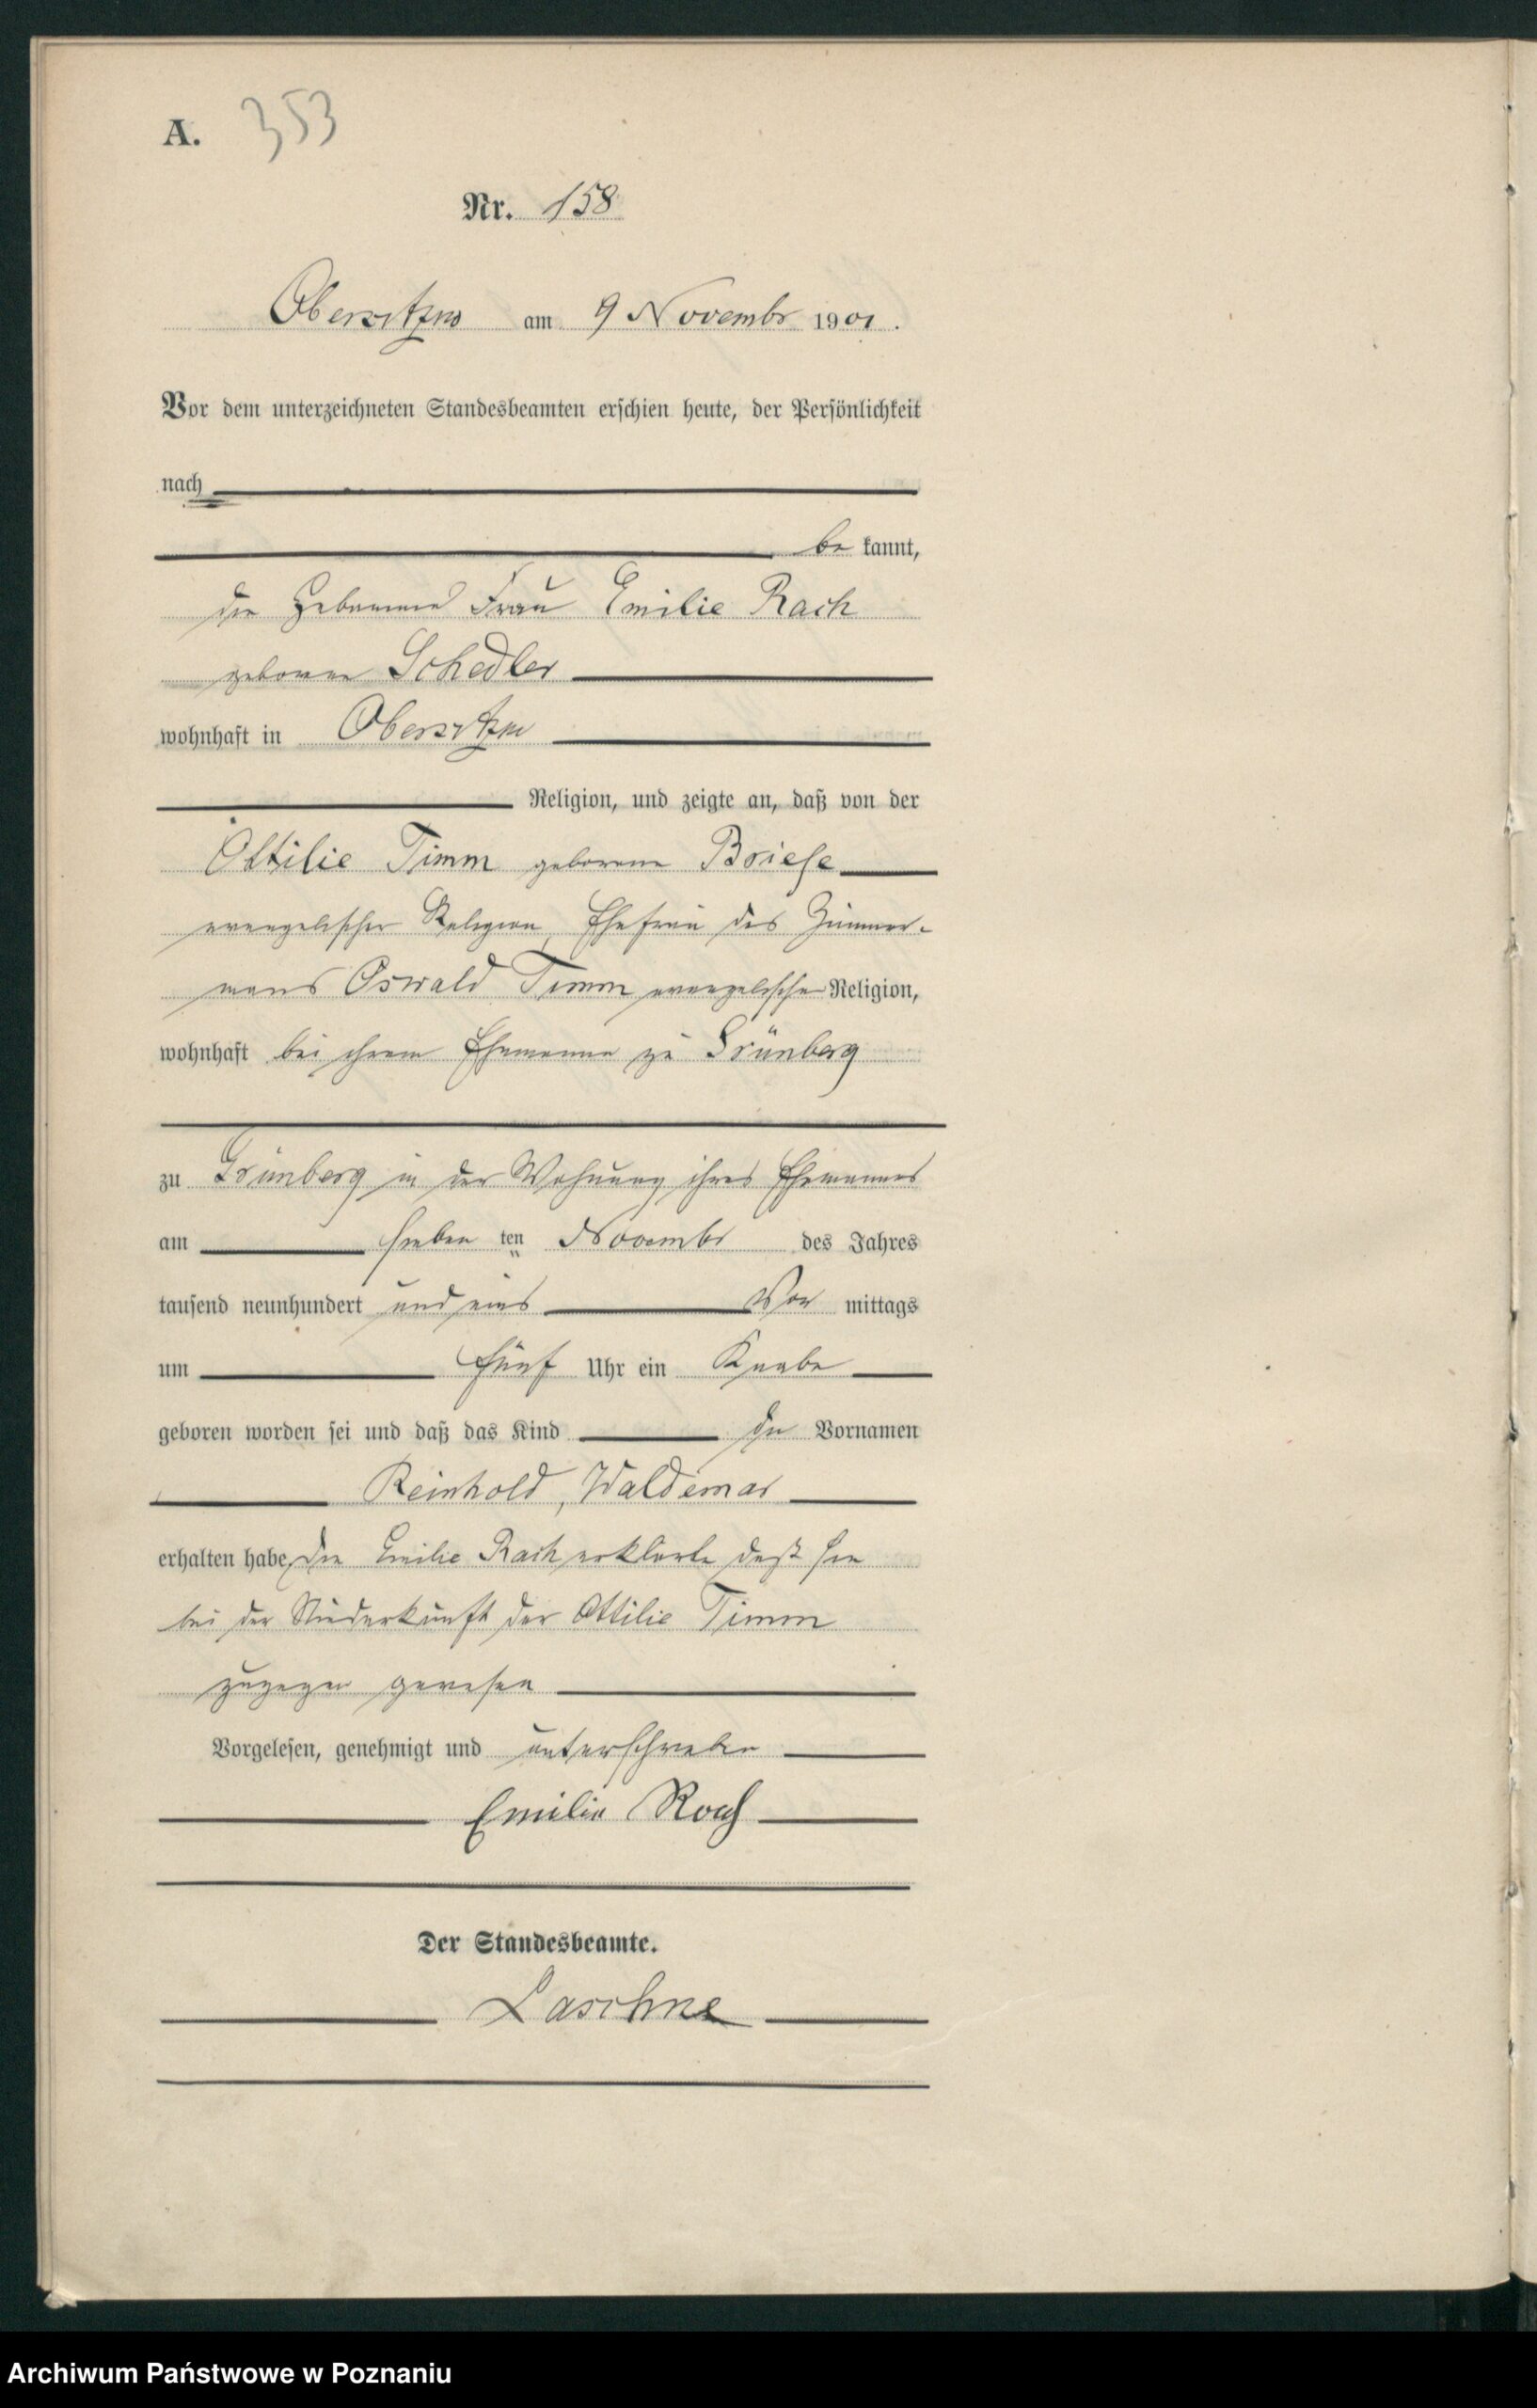 A. 353
Nr. 158
Obersitzko am 9 Novembr 1901.
Vor dem unterzeichneten Standesbeamten erschien heute, der Persönlichkeit
nach
be kannt,
die Hebamme Frau Emilie Rach
geborene Schedler
wohnhaft in Obersitzko
Religion, und zeigte an, daß von der
Ottilie Timm geborene Briese
evangelischer Religion, Ehefrau des Zimmer-
manns Oswald Timm evangelischer Religion,
wohnhaft bei ihrem Ehemanne zu Grünberg
zu Grünberg in der Wohnung ihres Ehemannes
am sieben ten Novembr des Jahres
tausend neunhundert und eins Vor mittags
um fünf Uhr ein Knabe
geboren worden sei und daß das Kind die Vornamen
Reinhold, Waldemar
erhalten habe, die Emilie Rach erklärte daß sie
bei der Niederkunft der Ottilie Timm
zugegen gewesen
Vorgelesen, genehmigt und unterschrieben
Emilie Rach
Der Standesbeamte.
Laschne
Archiwum Państwowe w Poznaniu